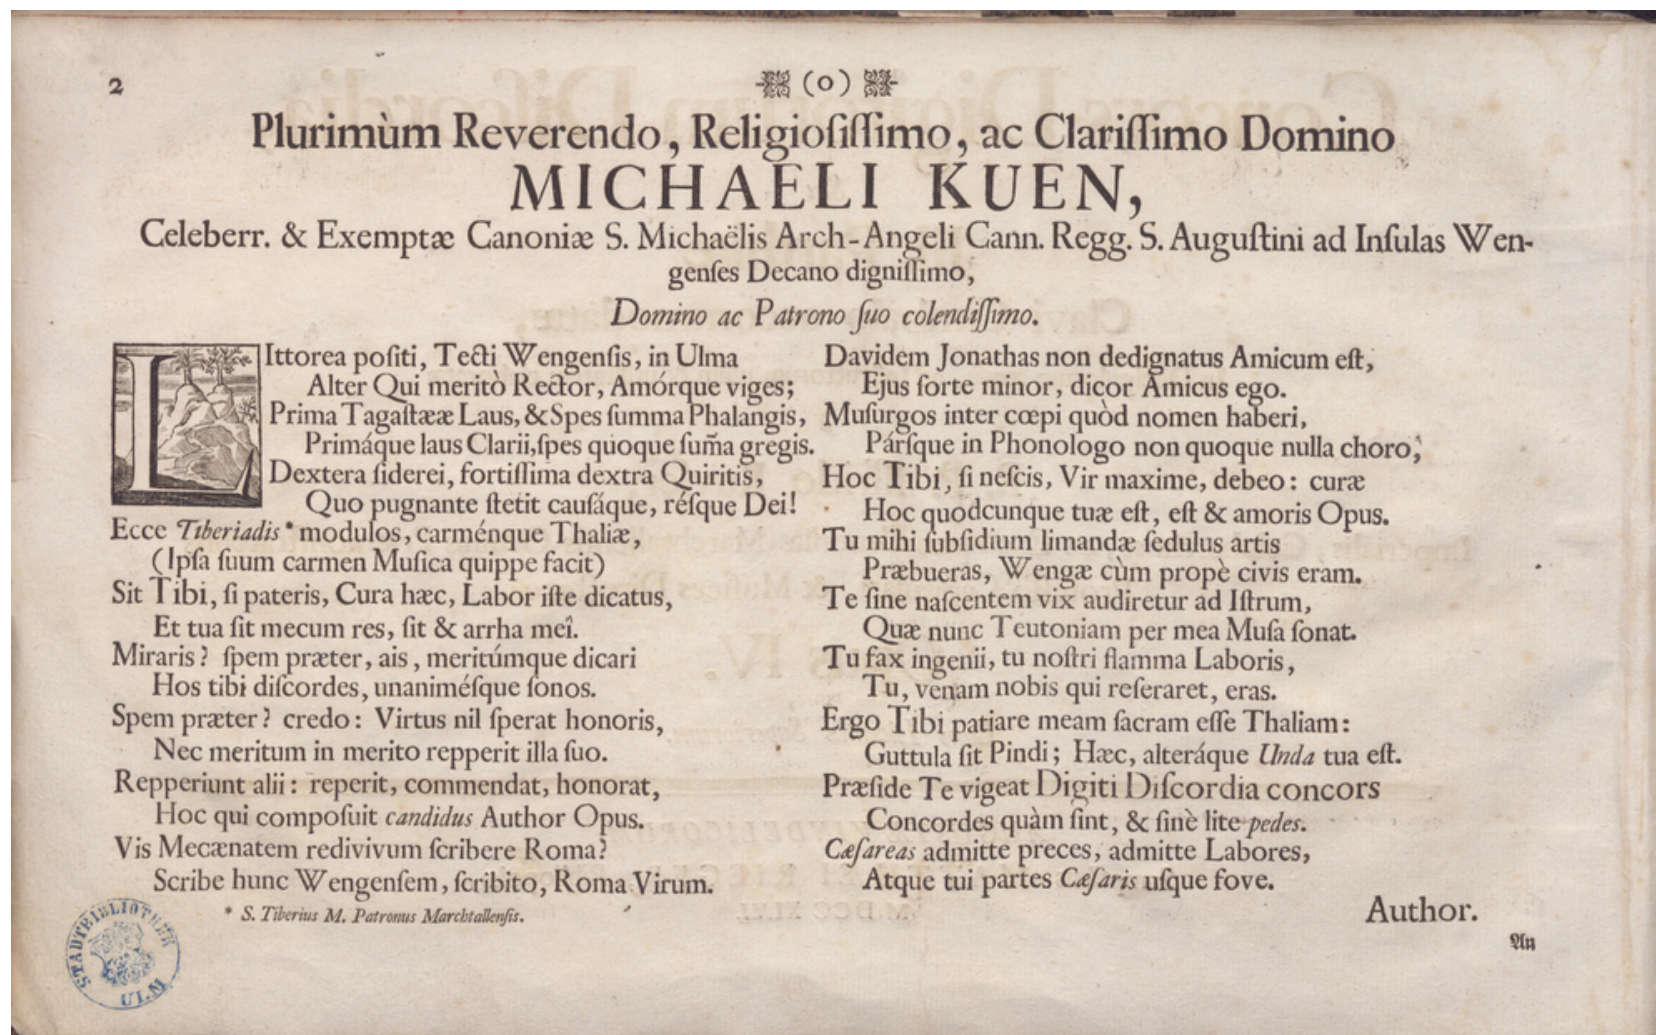 2
(o)
Plurimùm Reverendo, Religiosiſſimo, ac Clariſſimo Domino
MICHAELI KUEN,
Celeberr. & Exemptæ Canoniæ S. Michaëlis Arch-Angeli Cann. Regg. S. Auguſtini ad Inſulas Wen-
genſes Decano digniſſimo,
Domino ac Patrono ſuo colendiſſimo.
LIttorea poſiti, Tecti Wengenſis, in Ulma
Alter Qui meritò Rector, Amórque viges;
Prima Tagaſtææ Laus, & Spes ſumma Phalangis,
Primáque laus Clarii, ſpes quoque ſum̃a gregis.
Dextera ſiderei, fortiſſima dextra Quiritis,
Quo pugnante ſtetit cauſáque, réſque Dei!
Ecce Tiberiadis * modulos, carménque Thaliæ,
(Ipſa ſuum carmen Muſica quippe facit)
Sit Tibi, ſi pateris, Cura hæc, Labor iſte dicatus,
Et tua ſit mecum res, ſit & arrha meî.
Miraris? ſpem præter, ais, meritúmque dicari
Hos tibi diſcordes, unaniméſque ſonos.
Spem præter? credo: Virtus nil ſperat honoris,
Nec meritum in merito repperit illa ſuo.
Repperiunt alii: reperit, commendat, honorat,
Hoc qui compoſuit candidus Author Opus.
Vis Mecænatem redivivum ſcribere Roma?
Scribe hunc Wengenſem, ſcribito, Roma Virum.
* S. Tiberius M. Patronus Marchtallenſis.
Davidem Jonathas non dedignatus Amicum eſt,
Ejus ſorte minor, dicor Amicus ego.
Muſurgos inter cœpi quòd nomen haberi,
Párſque in Phonologo non quoque nulla choro;
Hoc Tibi, ſi neſcis, Vir maxime, debeo: curæ
Hoc quodcunque tuæ eſt, eſt & amoris Opus.
Tu mihi ſubſidium limandæ ſedulus artis
Præbueras, Wengæ cùm propè civis eram.
Te ſine naſcentem vix audiretur ad Iſtrum,
Quæ nunc Teutoniam per mea Muſa ſonat.
Tu fax ingenii, tu noſtri flamma Laboris,
Tu, venam nobis qui reſeraret, eras.
Ergo Tibi patiare meam ſacram eſſe Thaliam:
Guttula ſit Pindi; Hæc, alteráque Unda tua eſt.
Præſide Te vigeat Digiti Diſcordia concors
Concordes quàm ſint, & ſinè lite pedes.
Cæſareas admitte preces, admitte Labores,
Atque tui partes Cæſaris uſque fove.
Author.
An
STADTBIBLIOTHEK
ULM